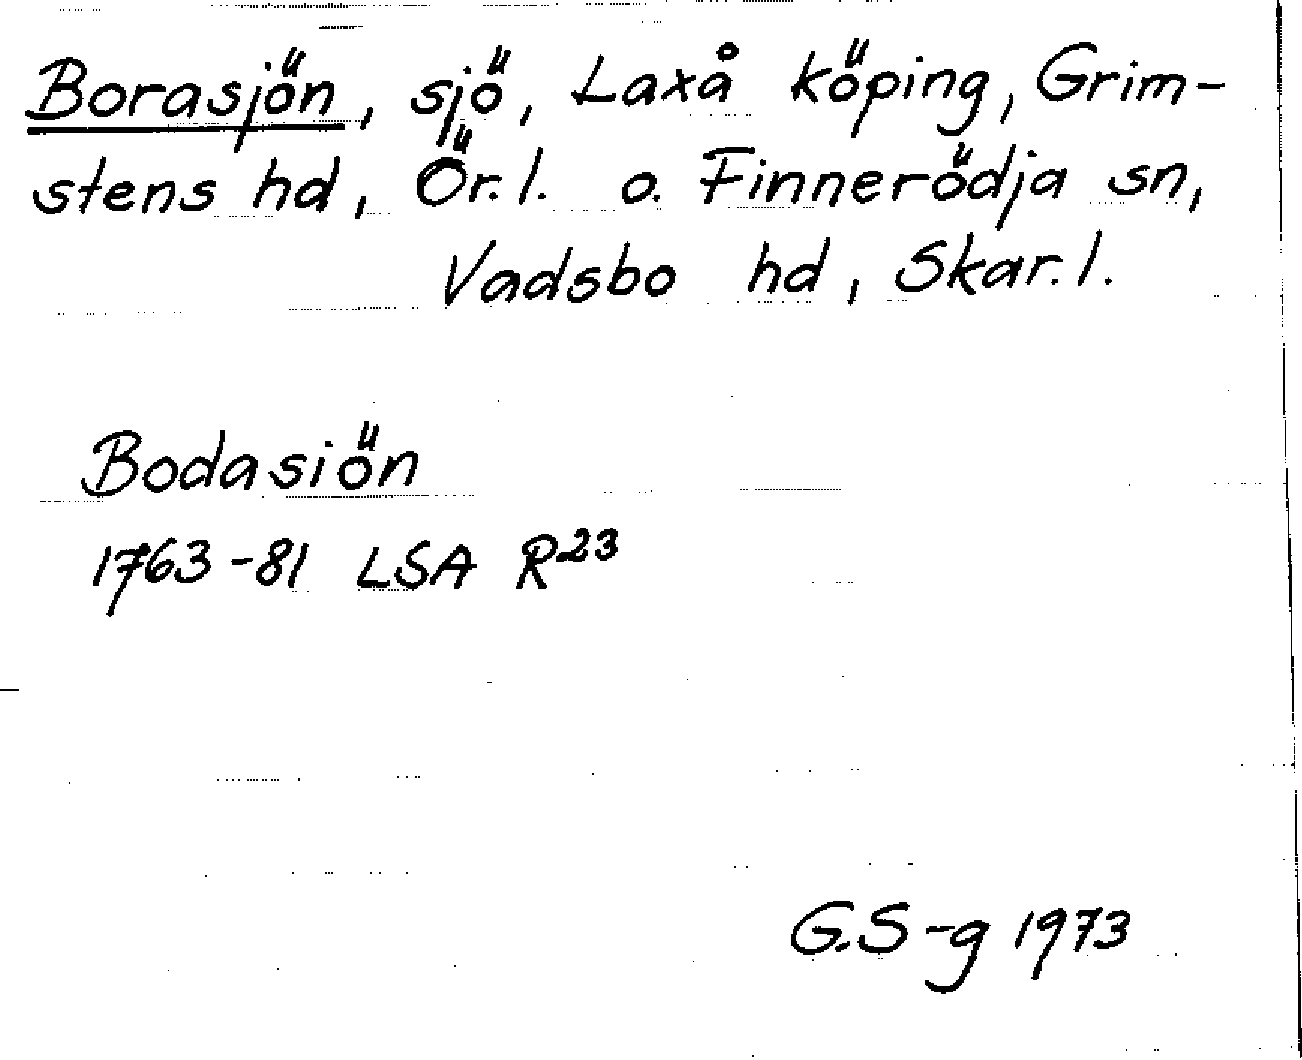 Borasjön, sjö, Laxå köping, Grim-
stens hd, Ör.l. o. Finnerödja sn,
Vadsbo hd, Skar.l.
Bodasiön
1763-81 LSA R23
G.S-g 1973